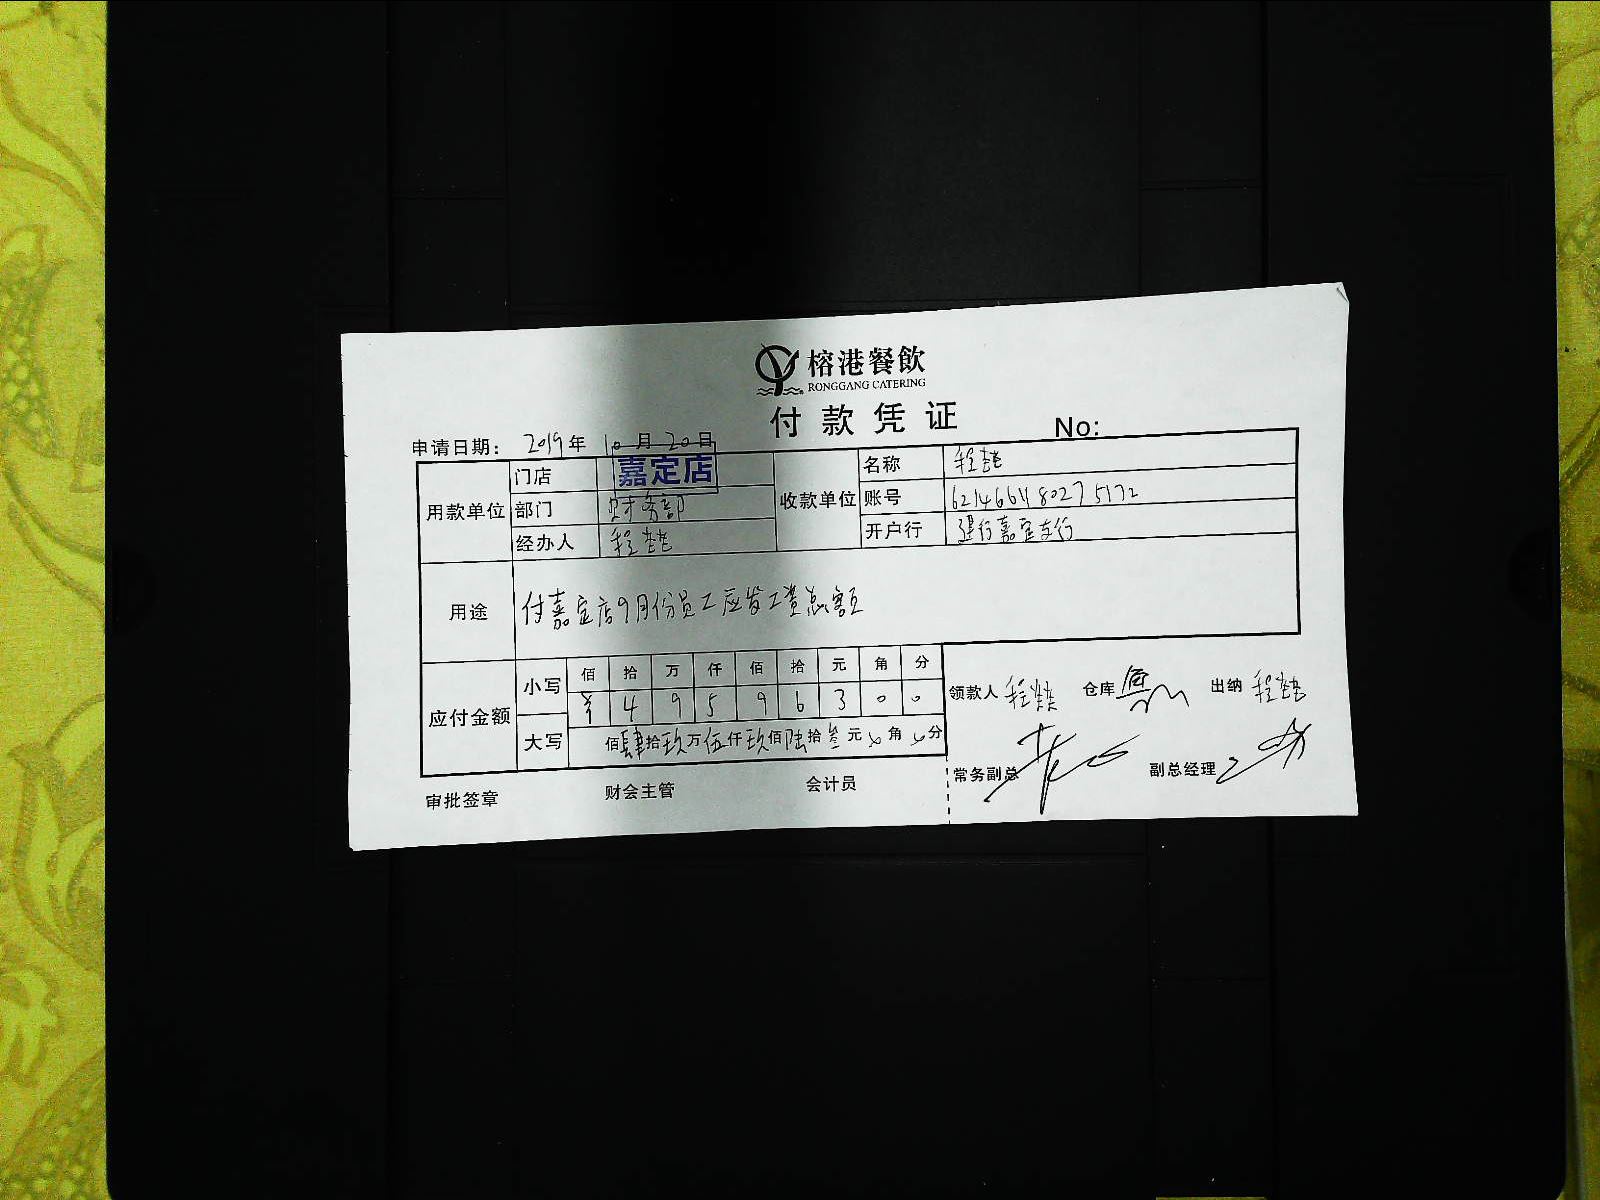 榕港餐飲
RONGGANG CATERING
付款凭证
申请日期: 2019年 10月 20日 No:
用款单位 门店 嘉定店 收款单位 名称 程
部门 财务部 账号
经办人 程 开户行 建行嘉定支行
用途 付嘉定店9月份员工应发工资总额
应付金额 小写 佰 拾 万 仟 佰 拾 元 角 分
¥ 4 9 5 9 6 3 0 0
大写 佰肆拾玖万伍仟玖佰陆拾叁元 角 分
领款人 程 仓库 出纳 程
常务副总 副总经理
审批签章 财会主管 会计员